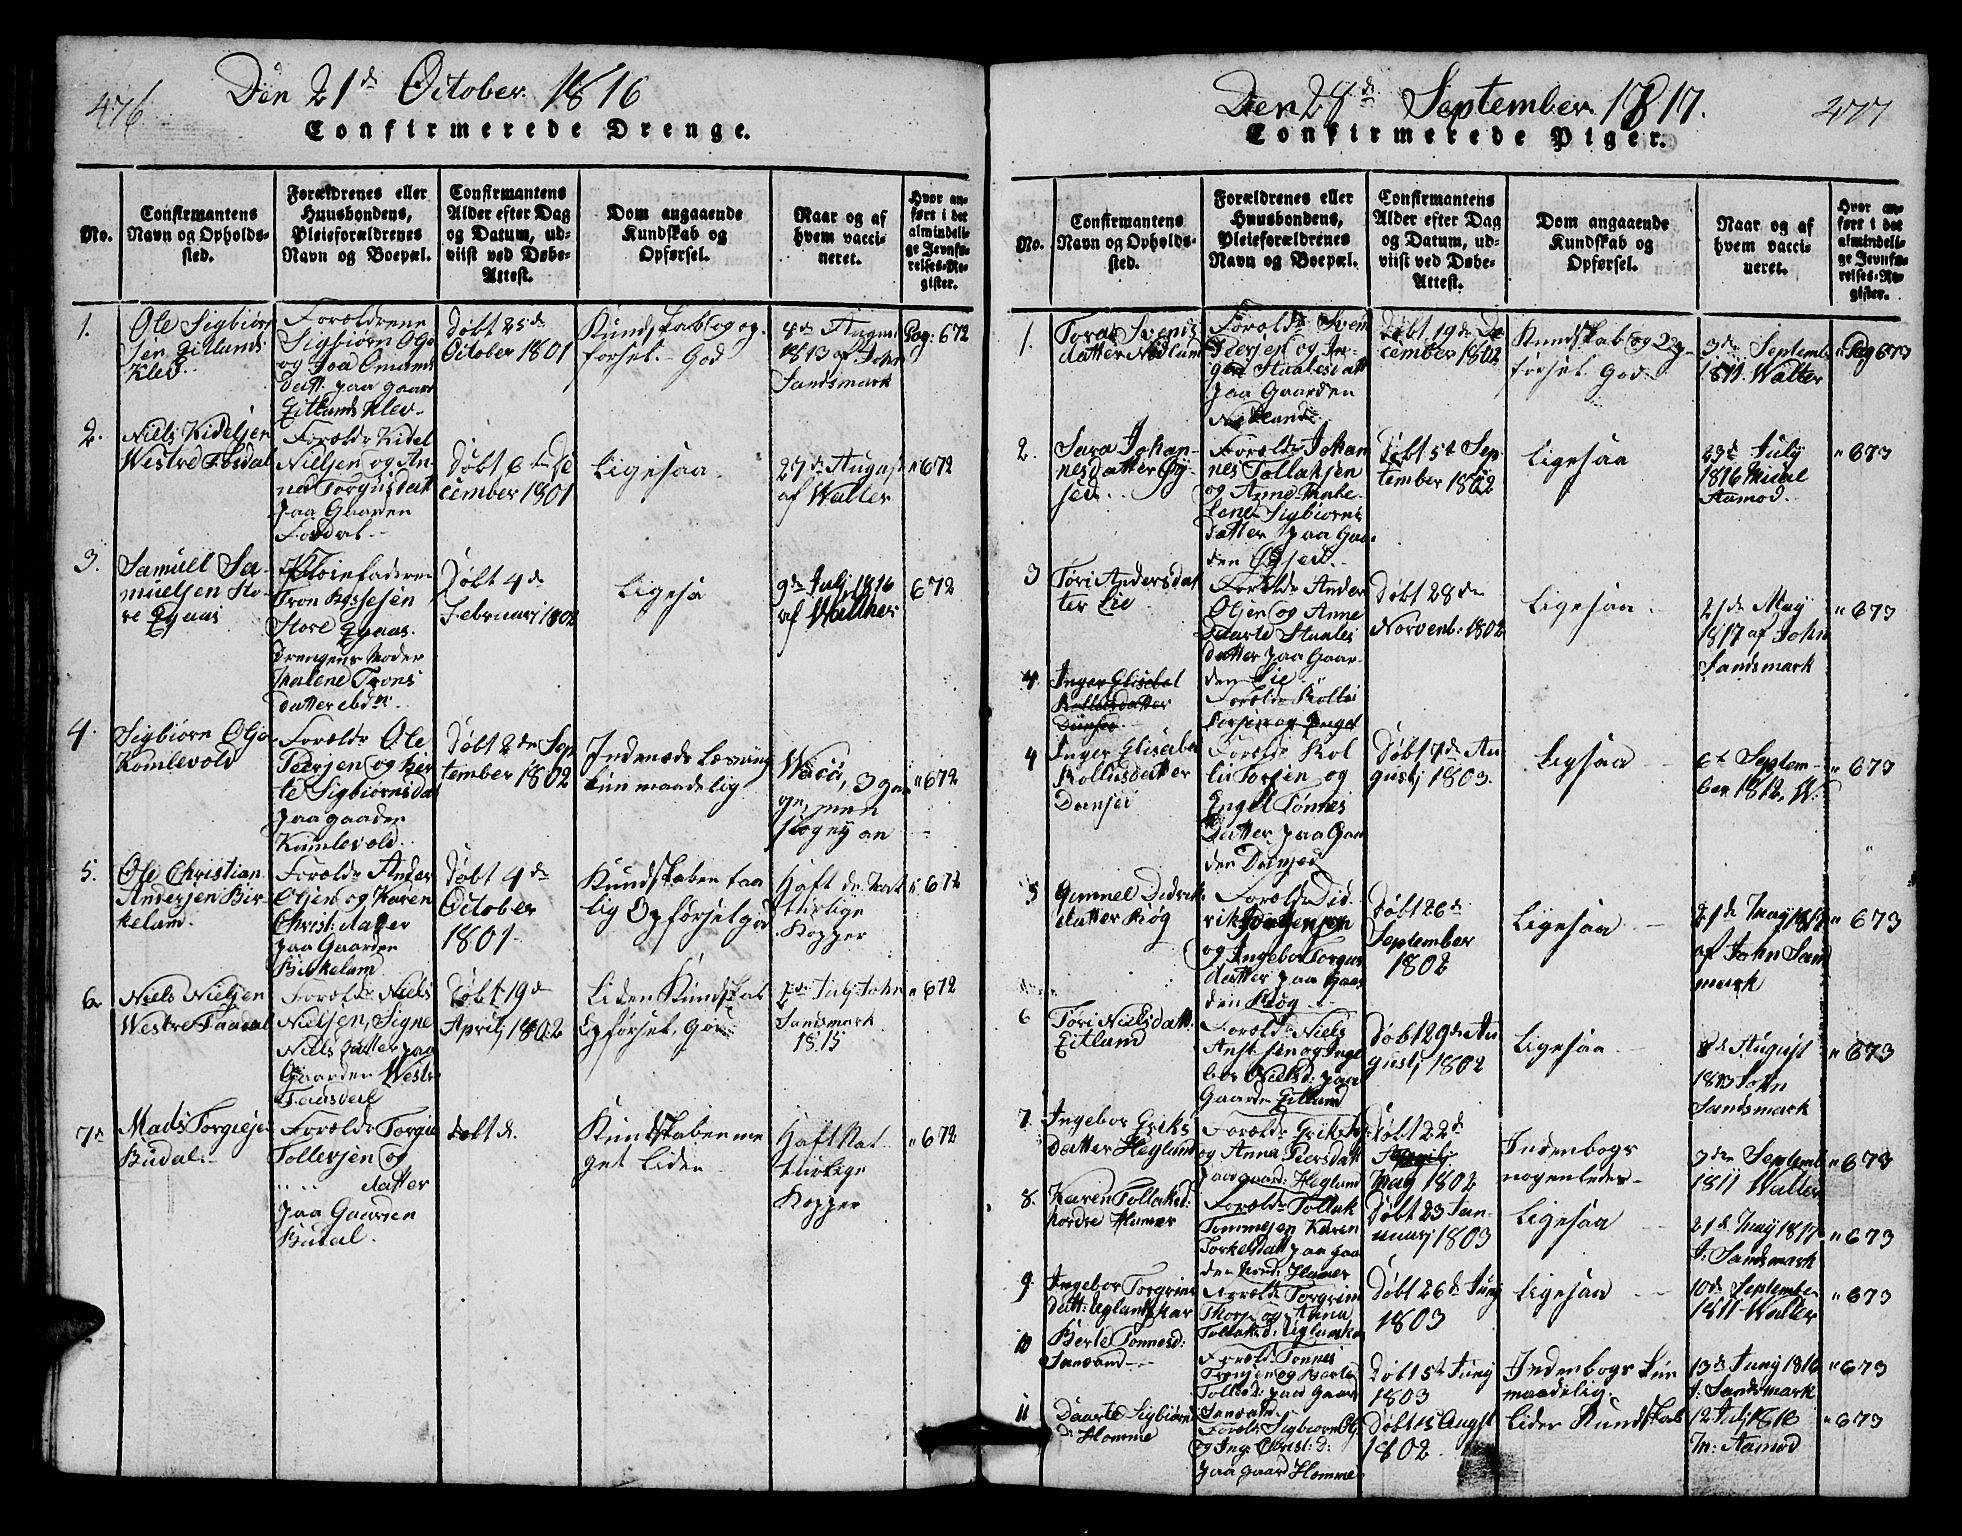 476
Den 21de October 1816
Confirmerede Drenge.
No.
Confirmantens
Navn og Opholds-
sted.
Forældrenes eller
Huusbondens,
Pleieforældrenes
Navn og Boepæl.
Confirmantens
Alder efter Dag
og Datum, ud-
viist ved Døbe-
Attest.
Dom angaaende
Kundskab og
Opførsel.
Naar og af
hvem vacci-
neret.
Hvor an-
ført i det
almindeli-
ge Jevnfø-
relses-Re-
gister.
1.
Ole Sigbiørn
sen Eitlands
Klev
Forældrene
Sigbiørn Ols
og Joa Omuns
datt: paa gaard
Eitlands Klev
Døbt 25de
October 1801
Kundskab og op-
førsel God
1813 af John
Sandsmark
Pag: 672
2.
Niels Kidelsen
Westre Fosdal
Foræld: Kidel
Nielsen og An-
na Torgusdatt
paa Gaarden
Fosdal
Døbt 6te De
cember 1801
Ligesaa
27de August
af Walter
" 672
3.
Samuel Sa-
muelsen Sto-
re Eyaas
Tron
Store Eyaas
Drengens Moder
Malene Trons
datter ibd:
Døbt 4de
Februarj 1802
Ligesa
9de Julj 1816
af Walther
672
4.
Sigbiørn Ols
Komlevold
Foræld: Ole
Peersen og Ber
te Sigbiørnsdat
paa gaaden
Kumlevold
Døbt 2den Sep
tember 1802
Indenads Læsning
kun maadelig
Vacci, 3 gan
ge, men
slog ey an
" 672
5.
Ole Christian
Andersen Bir-
kelam
Foræld: Ander
Olsen og Karen
Christ: datter
paa Gaarden
Birkelam
Døbt 4de
October
1801
Kundskaben taa
lig Opførsel god
Haft de Nat
turlige
Kopper
" 672
6.
Niels Nielsen
Westre Faadal
Foræld: Niels
Nielsen, Signe
Niels datter paa
Gaarden Westr
Døbt 19de
Aprilj 1802
Liden Kundskab
Opførsel, God
Julj John
Sandsmark
1815
" 672
7
Mads Torgiejs
Budal
Foræld: Torgie
Tollevsen og
" " datter
paa Gaarden
Budal
Kundskaben me
get Liden
Haft Nat
turlige
Kopper
" 672
Den 28de September 1817.
477
Confirmerede Piger.
No.
Confirmantens
Navn og Opholds-
sted.
Forældrenes eller
Huusbondens,
Pleieforældrenes
Navn og Boepæl.
Confirmantens
Alder efter Dag
og Datum, ud-
viist ved Døbe-
Attest.
Dom angaaende
Kundskab og
Opførsel.
Naar og af
hvem vacci-
neret.
Hvor an-
ført i det
almindeli-
ge Jevnfø-
relses-Re-
gister.
1.
Toras Svends
datter Nedland
Foræld: Svem
Peersen og In-
ger Staalesdatt
paa Gaarden
Nedland
Døbt 19de De
cember 1802
Kundskab og Op-
førsel God
3de Septemb
1811. Walter
" Pag 673
2.
Sara Johan-
nesdatter
Foræld: Johan
nes Tollaksen
og Anne
Lene Sigbiørns
datter paa Gaar
den
Døbt 5te Sep
tember 1802
Ligesaa
23de July
1816 Michel
Aamod
" 673
3
Tori Andersdat
ter Lie
Foræld: Ander
Olsen og Anne
Staales
datter paa Gaar-
den Lie
Døbt 28de
Novenb: 1802
Ligesaa
21de May
1817 af John
Sandsmark
" 673
4.
Inger Elisabet
Rollufsdatter
Foræld: Rollu
4
Inger Elisabe
Rollufsdatter
Foræld: Rol
lu Torsen og
Engel Tønnes
datter paa Gaar
den
Døbt 7de Au
gustj 1803.
Ligsaa
6te Septem-
ber 1812, W:
" 673
5
Gunnel Didrik
datter Røg
Foræld: Did
rik
og Ingebor Torgus
datter paa Gaar
den Røg
Døbt 26de
September
1802
Ligesaa
21de May 1817
af John Sam
mark
" 673
6
Tori Nielsdatt:
Eitland
Foræld: Niels
bor Nielsd: paa
Gaarde Eitland
Døbt 29de Au
gustj 1802
Ligesaa
August
1813 John
Sandsmark
" 673
7.
Ingebor Eriks
datter Heglund
Foræld: Erik
og Anna Peersdatt
paa gaard: Heglund
Døbt 22de
May 1802
Indenbogs
nogenledes
3de Septemb
1811 Walter
" 673
8.
Karen Tollaksd:
Nordre Homer
Foræld: Tollak
Tommesen Karen
Torkelsdatt paa gaa
den Nord: Homer
Døbt 23 Jan-
uarj 1803
Ligesaa
21de May 1817
J: Sandsmark
" 673
9
Ingebor Torgrims
datt: Uglandskar
Foræld: Torgrim
Thors: og Anna
Tollaksd: Uglanska
Døbt 26de Junj
1803
Ligesaa
10de Septembe
1811 Walter
" 673
10
Berte Tønnesd:
Sandsand
Foræld: Tønnes
Tollaksd: paa Gaard
Døbt 5te Junj
1803
Indenbogs kun
maadelig
13de Juny 1816
J: Sandsmark
" 673
11
Daarte Sigbiørns
D: Homme
Foræld: Sigbiørn Ols
og Ing: Christ: d:
paa gaard Homme
Døbt 15 Augst
1802
Liden Kundskab
12 Julj 1816
M: Aamod
" 673